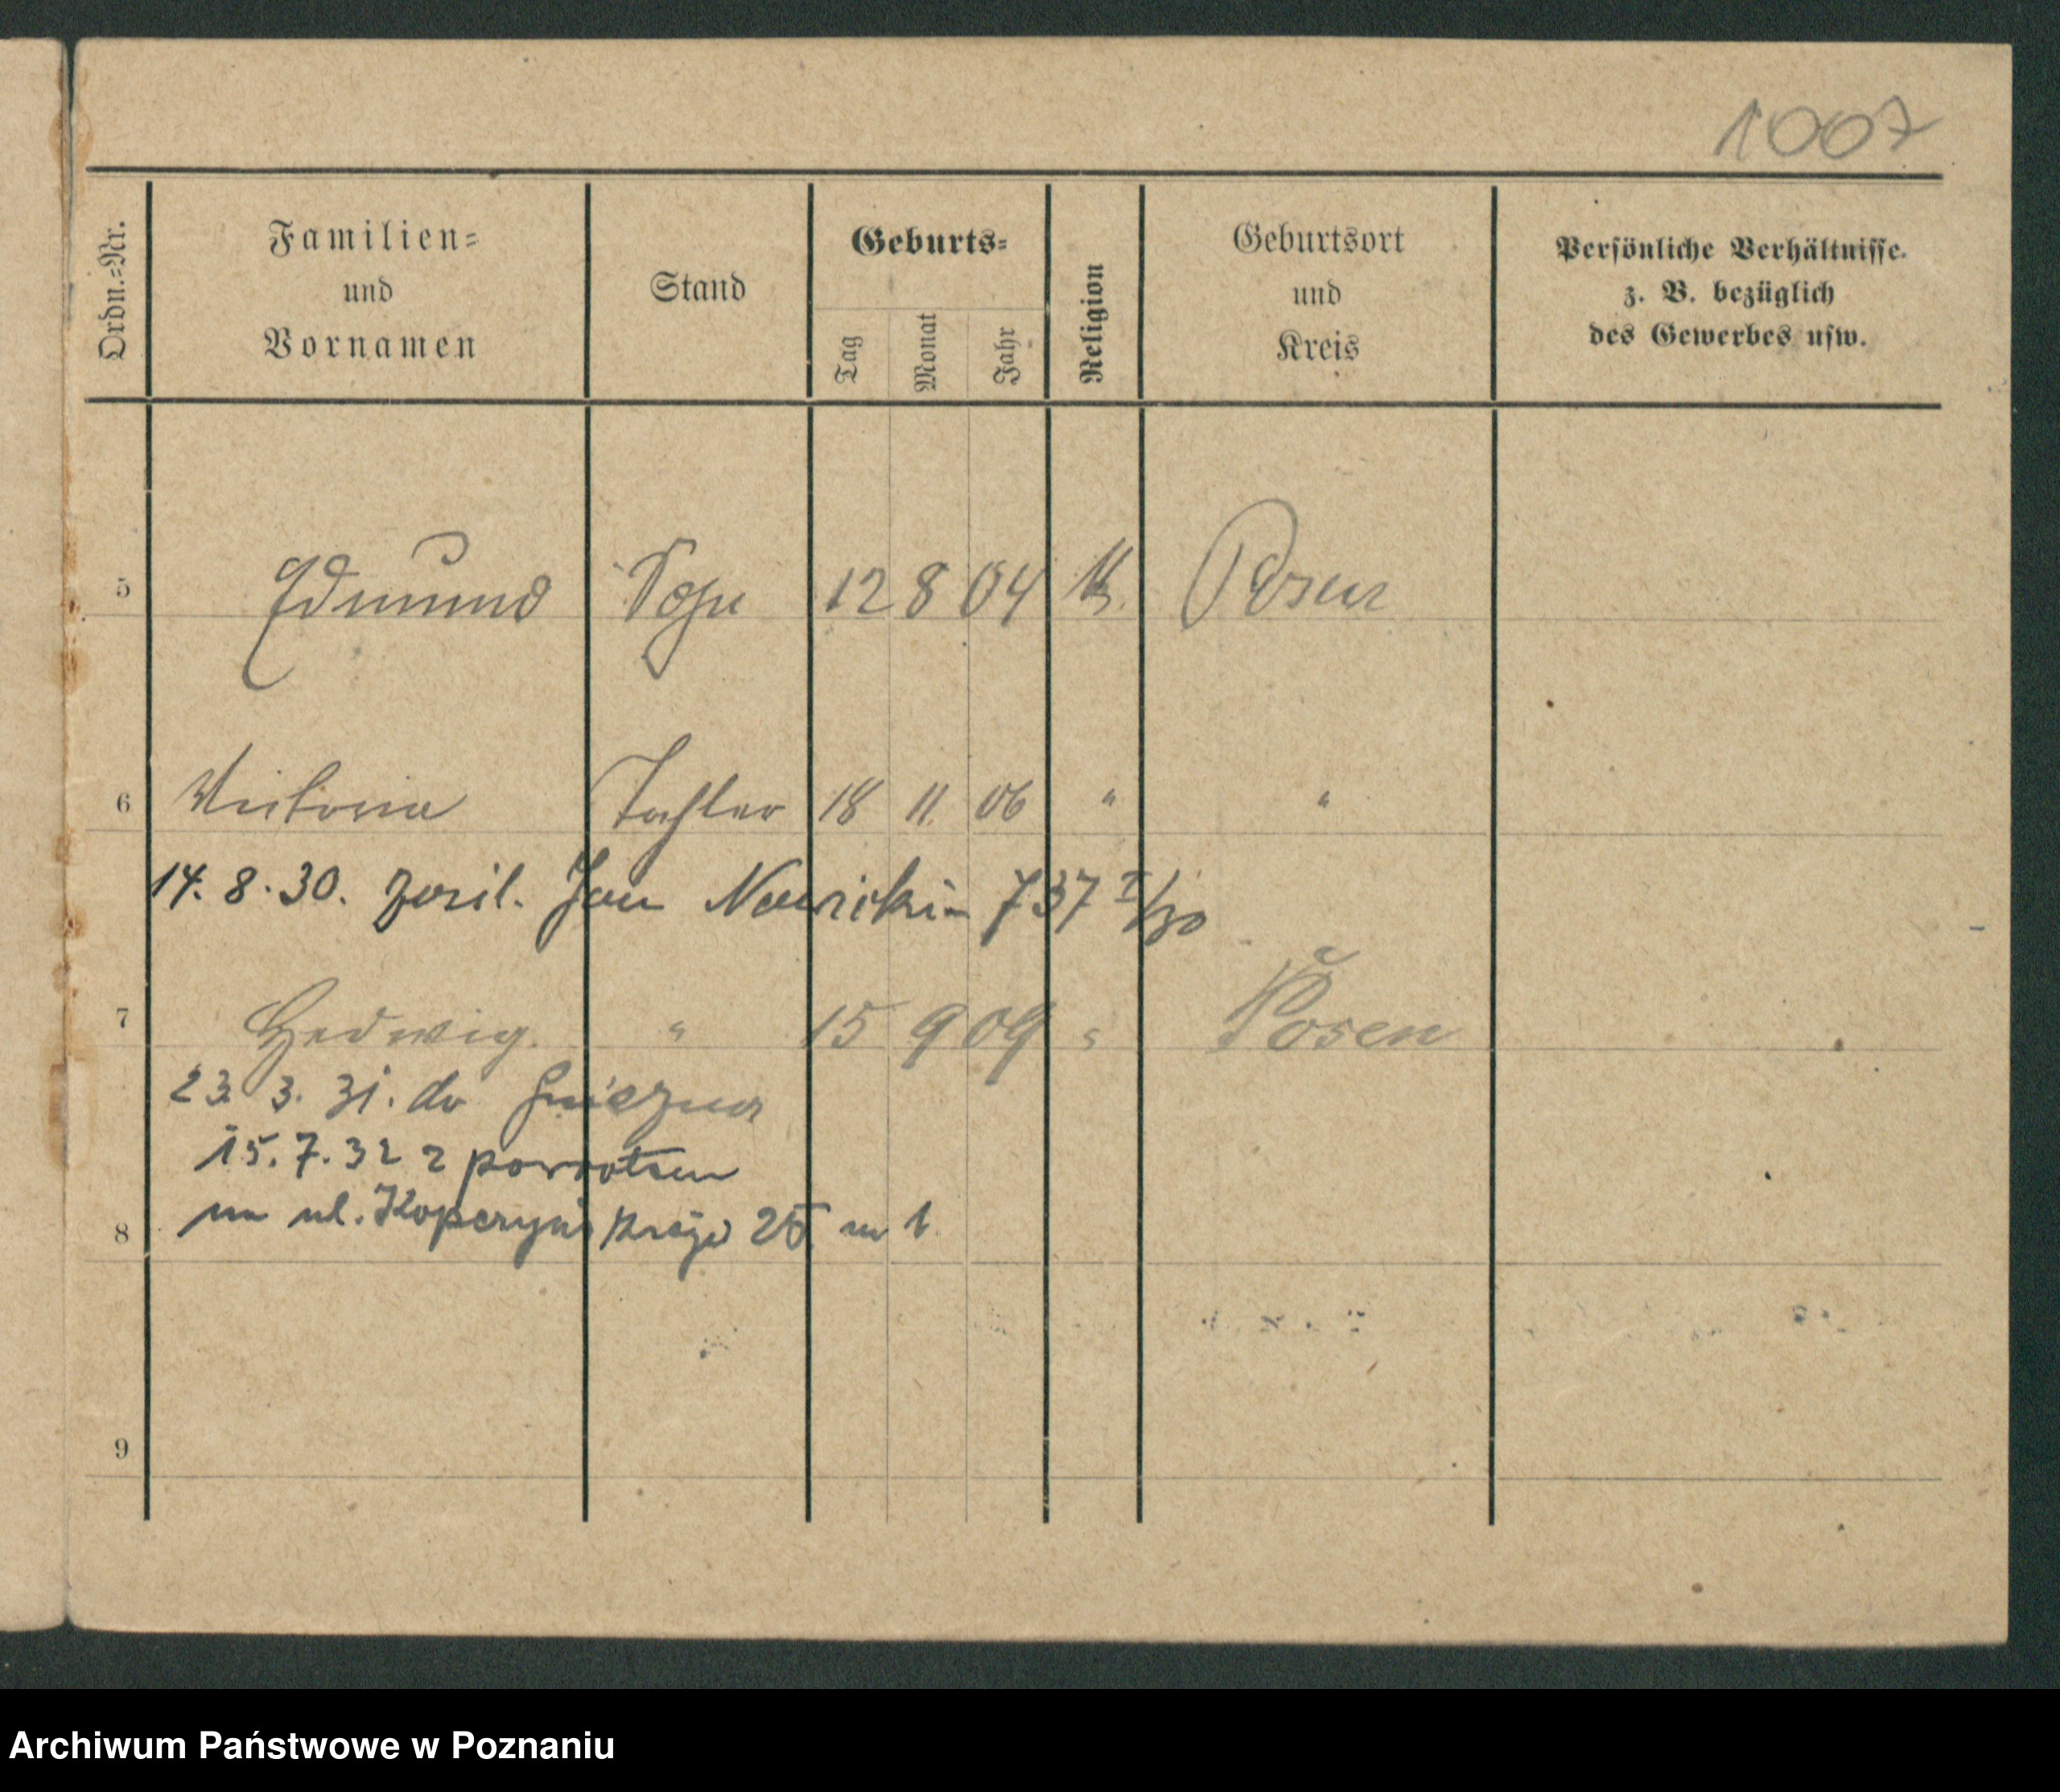 1007
Ordn.=Nr.
Familien=
und
Vornamen
Stand
Geburts=
Tag
Monat
Jahr
Religion
Geburtsort
und
Kreis
Persönliche Verhältnisse.
z. B. bezüglich
des Gewerbes usw.
5 Edmund 12 8 04 K. Posen
6 Victoria Tochter 18 11. 06 " "
14. 8. 30. zasil. Jan Nawricki - 737 I/30
7 Hedwig. " 15 9 09 " Posen
23. 3. 31. do Gniezna
15. 7. 32 z powrotem
8 na ul. Kopczyńskiego 25 m 1.
9
Archiwum Państwowe w Poznaniu